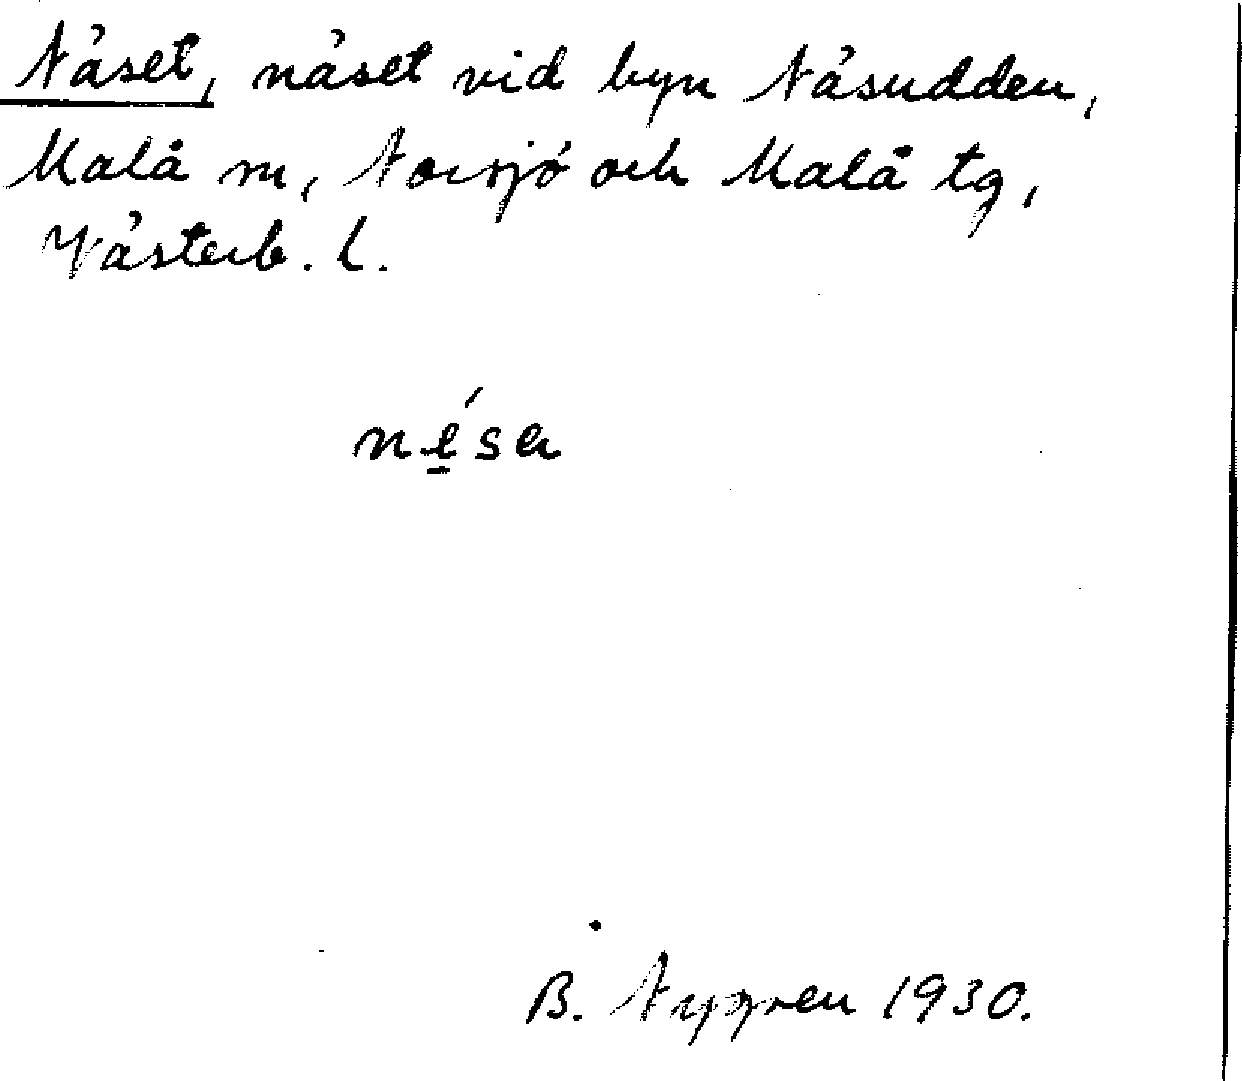 Näset, näset vid byn Näsudden,
Malå sn, Norsjö och Malå tg,
Västerb. l.
né̱sa
B. Nygren 1930.